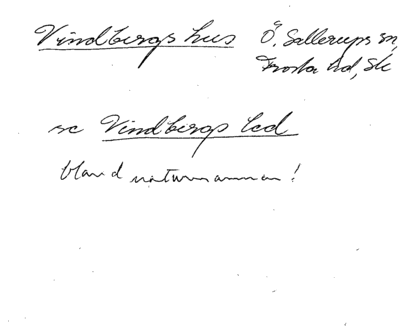 Vindbergs hus Ö. Sallerups sn,
Frosta hd, Sk
se Vindbergs led
bland naturnamnen!